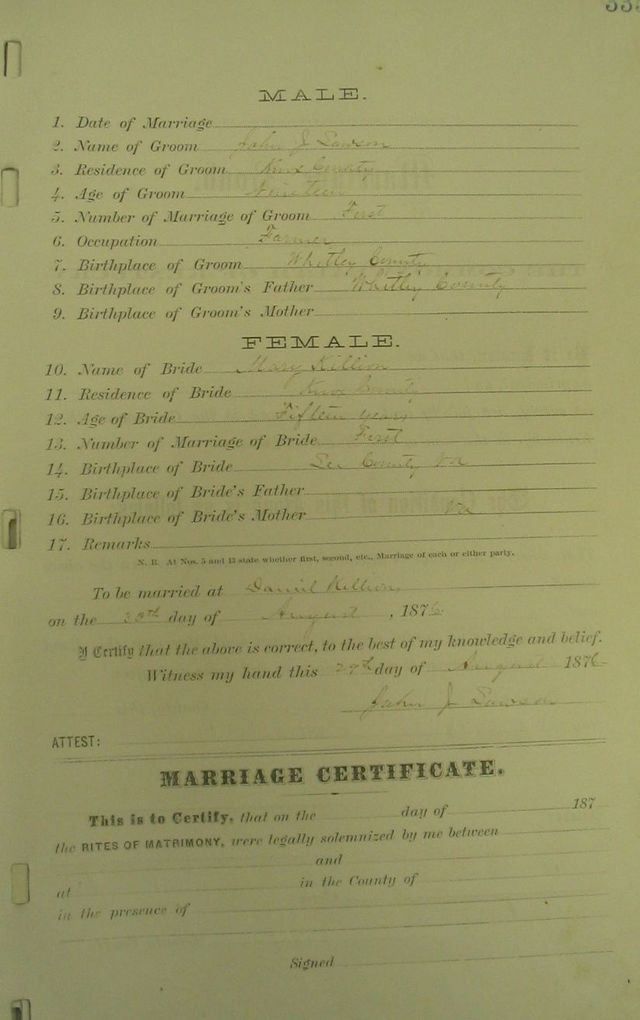 33
MALE.
1. Date of Marriage
2. Name of Groom John J Lawson
3. Residence of Groom Knox County
4. Age of Groom Nineteen
5. Number of Marriage of Groom First
6. Occupation Farmer
7. Birthplace of Groom Whitley County
8. Birthplace of Groom's Father Whitley County
9. Birthplace of Groom's Mother
FEMALE.
10. Name of Bride Mary Killion
11. Residence of Bride Knox County
12. Age of Bride Fifteen years
13. Number of Marriage of Bride First
14. Birthplace of Bride Lee County Va
15. Birthplace of Bride's Father
16. Birthplace of Bride's Mother Va
17. Remarks
N. B. At Nos. 5 and 13 state whether first, second, etc., Marriage of each or either party.
To be married at Daniel Killions
on the 30th day of August, 1876
I Certify that the above is correct, to the best of my knowledge and belief.
Witness my hand this 29th day of August 1876
John J Lawson
ATTEST:
MARRIAGE CERTIFICATE.
This is to Certify, that on the day of 187
the RITES OF MATRIMONY, were legally solemnized by me between
and
at in the County of
in the presence of
Signed